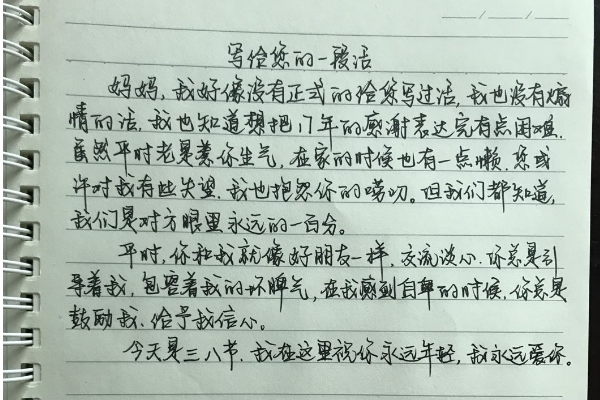 写给您的一段话
妈妈，我好像没有正式的给您写过话，我也没有煽
情的话，我也知道想把17年的感谢表达完有点困难，
虽然平时老是惹你生气，在家的时候也有一点懒，您或
许对我有些失望，我也抱怨你的唠叨。但我们都知道，
我们是对方眼里永远的一百分。
平时，你和我就像好朋友一样，交流谈心，你总是引
导着我，包容着我的坏脾气，在我感到自卑的时候，你总是
鼓励我、给予我信心。
今天是三八节，我在这里祝你永远年轻，我永远爱你。